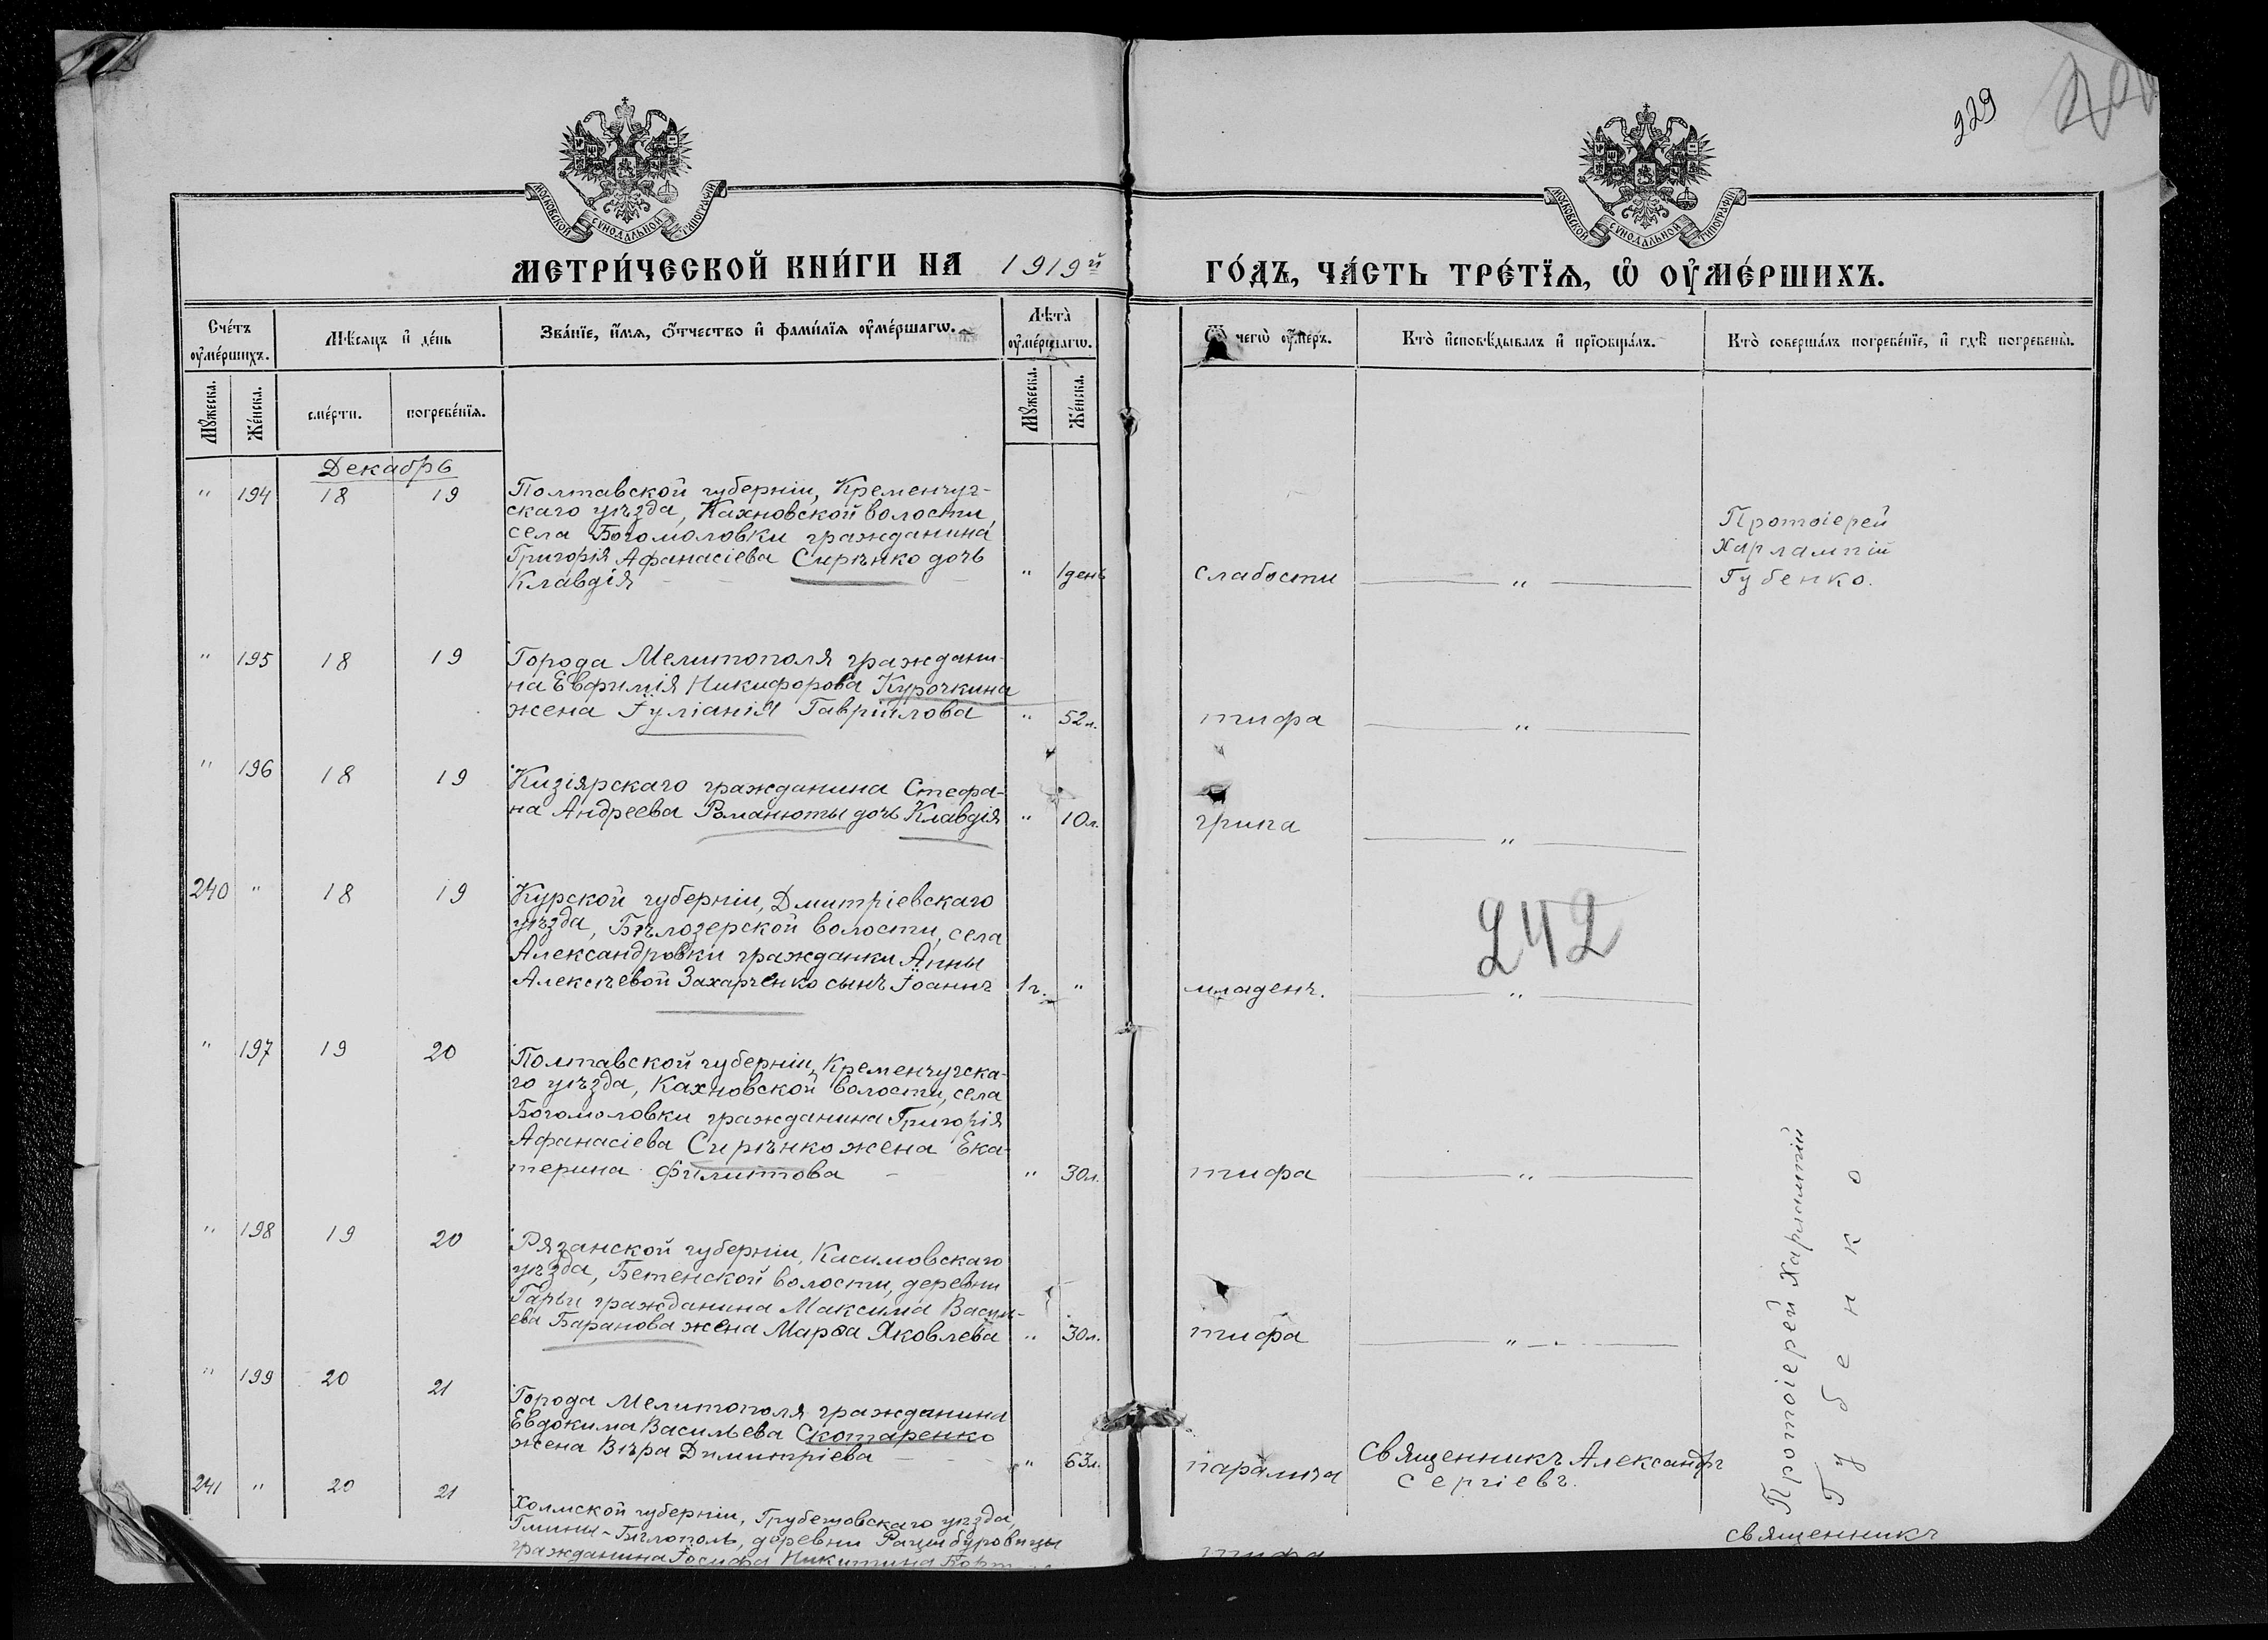 229
МОСКОВСКОЙ СѴНОДАЛЬНОЙ ТИПОГРАФІИ
МОСКОВСКОЙ СѴНОДАЛЬНОЙ ТИПОГРАФІИ
МЕТРИ́ЧЕСКОЙ КНИ́ГИ НА 1919й ГО́ДЪ, ЧА́СТЬ ТРЕ́ТЇѦ, Ѡ҆ ОУ҆МЕ́РШИХЪ.
Сче́тъ оу҆ме́ршихъ.
Мѣ́сяцъ и҆ де́нь
Зва́нїе, и҆́мѧ, ѻ҆́тчество и҆ фами́лїѧ оу҆ме́ршагѡ.
Лѣта̀ оу҆ме́ршагѡ.
Ѿ чегѡ̀ оу҆́меръ.
Кто̀ и҆сповѣ́дывалъ и҆ прїѡбща́лъ.
Кто̀ соверша́лъ погребе́нїе, и҆ гдѣ̀ погребены̀.
Мꙋ́жеска. Же́нска. сме́рти. погребе́нїѧ. Мꙋ́жеска. Же́нска.
Декабрь
" 194 18 19 Полтавской губерніи, Кременчуг-
скаго уѣзда, Кахновской волости,
села Богомоловки гражданина
Григорія Афанасіева Сирѣнко дочь
Клавдія " 1 день слабости "
Протоіерей
Харлампій
Губенко.
" 195 18 19 Города Мелитополя граждани-
на Евфимія Никифорова Курочкина
жена Іуліанія Гавріилова " 52 л. тифа "
" 196 18 19 Кизіярскаго гражданина Стефа-
на Андреева Романюты дочь Клавдія " 10 л. грипа "
240 " 18 19 Курской губерніи, Дмитріевскаго
уѣзда, Бѣлозерской волости, села
Александровки гражданки Анны
Алексѣевой Захарченко сынъ Іоаннъ 1 г. " младенч. "
242
" 197 19 20 Полтавской губерніи, Кременчугска-
го уѣзда, Кахновской волости, села
Богомоловки гражданина Григорія
Афанасіева Сирѣнко жена Ека-
терина Филиппова " 30 л. тифа "
" 198 19 20 Рязанской губерніи, Касимовскаго
уѣзда, Бетенской волости, деревни
Гары гражданина Максима Васил-
ева Баранова жена Марѳа Яковлева " 30 л. тифа "
" 199 20 21 Города Мелитополя гражданина
Евдокима Васильева Скотаренко
жена Вѣра Димитріева " 63 л. паралича
Священникъ Александръ
Сергіевъ.
Протоіерей Харлампій
Губенко
241 " 20 21 Холмской губерніи, Грубешовскаго уѣзда,
Гмины-Бѣлополь, деревни Рацибуровицы
гражданина Іосифа Никитина тифа
священникъ